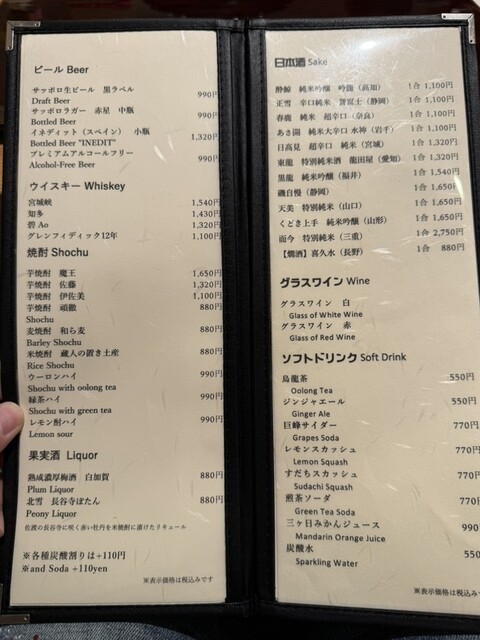 ビール Beer
サッポロ生ビール 黒ラベル
Draft Beer 990円
サッポロラガー 赤星 中瓶
Bottled Beer 990円
イネディット（スペイン） 小瓶
Bottled Beer "INEDIT" 1,320円
プレミアムアルコールフリー
Alcohol-Free Beer 990円
ウイスキー Whiskey
宮城峡 1,540円
知多 1,430円
碧 Ao 1,320円
グレンフィディック12年 1,100円
焼酎 Shochu
芋焼酎 魔王 1,650円
芋焼酎 佐藤 1,320円
芋焼酎 伊佐美 1,100円
芋焼酎 頑徹 880円
Shochu
麦焼酎 和ら麦 880円
Barley Shochu
米焼酎 蔵人の置き土産 880円
Rice Shochu
ウーロンハイ 990円
Shochu with oolong tea
緑茶ハイ 990円
Shochu with green tea
レモン酎ハイ 990円
Lemon sour
果実酒 Liquor
熟成濃厚梅酒 白加賀 880円
Plum Liquor
北雪 長谷寺ぼたん 880円
Peony Liquor
佐渡の長谷寺に咲く赤い牡丹を米焼酎に漬けたリキュール
※各種炭酸割りは+110円
※and Soda +110yen
※表示価格は税込みです
日本酒 Sake
酔鯨 純米吟醸 吟麗（高知） 1合 1,100円
正雪 辛口純米 誉富士（静岡） 1合 1,100円
春鹿 純米 超辛口（奈良） 1合 1,100円
あさ開 純米大辛口 水神（岩手） 1合 1,100円
日高見 超辛口 純米（宮城） 1合 1,320円
東龍 特別純米酒 龍田屋（愛知） 1合 1,320円
黒龍 純米吟醸（福井） 1合 1,540円
磯自慢（静岡） 1合 1,650円
天美 特別純米（山口） 1合 1,650円
くどき上手 純米吟醸（山形） 1合 1,650円
而今 特別純米（三重） 1合 2,750円
【燗酒】喜久水（長野） 1合 880円
グラスワイン Wine
グラスワイン 白
Glass of White Wine
グラスワイン 赤
Glass of Red Wine
ソフトドリンク Soft Drink
烏龍茶 550円
Oolong Tea
ジンジャエール 550円
Ginger Ale
巨峰サイダー 770円
Grapes Soda
レモンスカッシュ 770円
Lemon Squash
すだちスカッシュ 770円
Sudachi Squash
煎茶ソーダ 770円
Green Tea Soda
三ヶ日みかんジュース 990
Mandarin Orange Juice
炭酸水 550
Sparkling Water
※表示価格は税込み